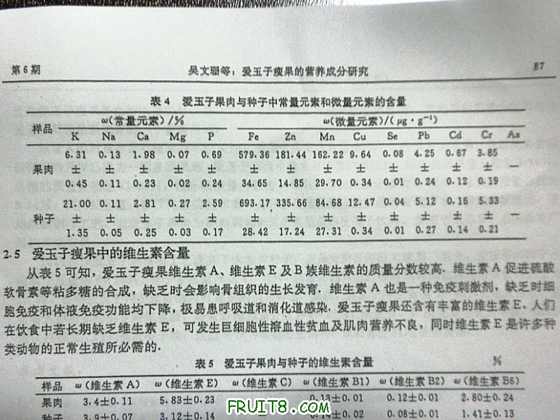 第6期 吴文珊等：爱玉子瘦果的营养成分研究 87
表 4 爱玉子果肉与种子中常量元素和微量元素的含量
样品 ω(常量元素)/% ω(微量元素)/(μg·g⁻¹)
K Na Ca Mg P Fe Zn Mn Cu Se Pb Cd Cr As
6.31 0.13 1.98 0.07 0.69 579.36 181.44 162.22 9.64 0.08 4.25 0.67 3.85
果肉 ± ± ± ± ± ± ± ± ± ± ± ± ± —
0.45 0.11 0.23 0.02 0.24 34.65 14.85 29.70 0.34 0.01 0.24 0.12 0.19
21.00 0.11 2.81 0.27 2.59 693.17 335.66 84.68 12.47 0.04 5.12 0.16 5.33
种子 ± ± ± ± ± ± ± ± ± ± ± ± ± —
1.35 0.05 0.25 0.03 0.17 28.42 17.24 27.31 0.34 0.01 0.27 0.14 0.21
2.5 爱玉子瘦果中的维生素含量
从表 5 可知，爱玉子瘦果维生素 A、维生素 E 及 B 族维生素的质量分数较高. 维生素 A 促进硫酸
软骨素等粘多糖的合成，缺乏时会影响骨组织的生长发育. 维生素 A 也是一种免疫刺激剂，缺乏时细
胞免疫和体液免疫功能均下降，极易患呼吸道和消化道感染. 爱玉子瘦果还含有丰富的维生素 E. 人们
在饮食中若长期缺乏维生素 E，可发生巨细胞性溶血性贫血及肌肉营养不良，同时维生素 E 是许多种
类动物的正常生殖所必需的.
表 5 爱玉子果肉与种子的维生素含量 %
样品 ω(维生素 A) ω(维生素 E) ω(维生素 C) ω(维生素 B1) ω(维生素 B2) ω(维生素 B6)
果肉 3.4±0.11 5.83±0.23 0.13±0.01 0.12±0.01 2.80±0.24
种子 3.9±0.07 3.12±0.14 ±0.02 0.08±0.01 1.41±0.13
FRUIT8.COM